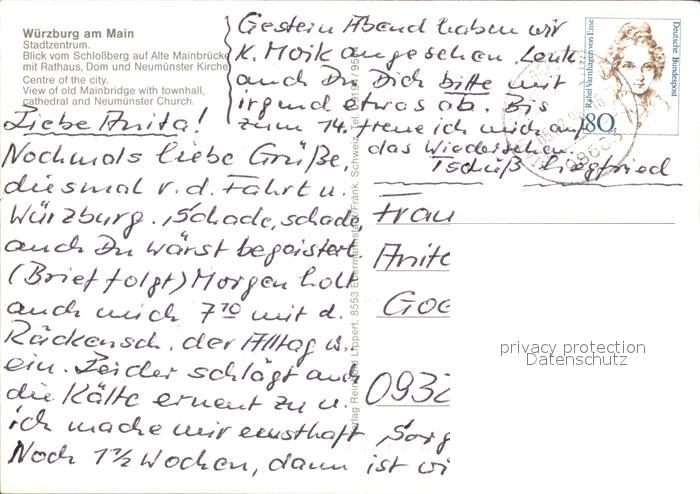 Würzburg am Main
Stadtzentrum.
Blick vom Schloßberg auf Alte Mainbrücke
mit Rathaus, Dom und Neumünster Kirche
Centre of the city.
View of old Mainbridge with townhall,
cathedral and Neumünster Church.
Liebe Anita!
Nochmals liebe Grüße,
diesmal v. d. Fahrt n.
Würzburg. Schade, schade,
auch Du wärst begeistert.
(Brief folgt) Morgen holt
auch mich 7 10 mit d.
der Alltag w.
ein. Leider schlägt auch
die Kälte erneut zu u.
ich mache mir ernsthaft Sorg
Noch 1½ Wochen, dann ist wi
Gestern Abend haben wir
K. Moik angesehen. Lenk
auch Du Dich bitte mit
irgend etwas ab. Bis
zum 14. freue ich mich auf
das Wiedersehen.
Tschüß Siegfried
Frau
Anita
Goe
0932
Verlag Reinhold Lippert, 8553 Ebermannstadt/Fränk. Schweiz, Tel.
Deutsche Bundespost
Rahel Varnhagen von Ense
80
privacy protection
Datenschutz